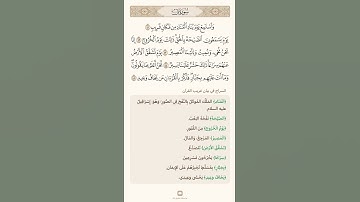 وَٱسْتَمِعْ يَوْمَ يُنَادِ ٱلْمُنَادِ مِن مَّكَانٍ قَرِيبٍ
يَوْمَ يَسْمَعُونَ ٱلصَّيْحَةَ بِٱلْحَقِّ ذَٰلِكَ يَوْمُ ٱلْخُرُوجِ إِنَّا
نَحْنُ نُحْىِۦ وَنُمِيتُ وَإِلَيْنَا ٱلْمَصِيرُ يَوْمَ تَشَقَّقُ ٱلْأَرْضُ
عَنْهُمْ سِرَاعًا ذَٰلِكَ حَشْرٌ عَلَيْنَا يَسِيرٌ نَّحْنُ أَعْلَمُ بِمَا يَقُولُونَ
وَمَآ أَنتَ عَلَيْهِم بِجَبَّارٍ فَذَكِّرْ بِٱلْقُرْءَانِ مَن يَخَافُ وَعِيدِ
السراج في بيان غريب القرآن
(المُنَادِ) المَلَكُ المُوَكَّلُ بِالنَّفْخِ فِي الصُّورِ؛ وَهُوَ إِسْرَافِيلُ
عليه السلام.
(الصَّيْحَةَ) نَفْخَةَ البَعْثِ.
(يَوْمُ الْخُرُوجِ) مِنَ القُبُورِ.
(الْمَصِيرُ) المَرْجِعُ، وَالمَآلُ.
(تَشَقَّقُ الْأَرْضُ) تَتَصَدَّعُ.
(سِرَاعًا) يَخْرُجُونَ مُسْرِعِينَ.
(بِجَبَّارٍ) بِمُسَلَّطٍ تُجْبِرُهُمْ عَلَى الإِيمَانِ.
(يَخَافُ وَعِيدِ) يَخْشَى وَعِيدِي.